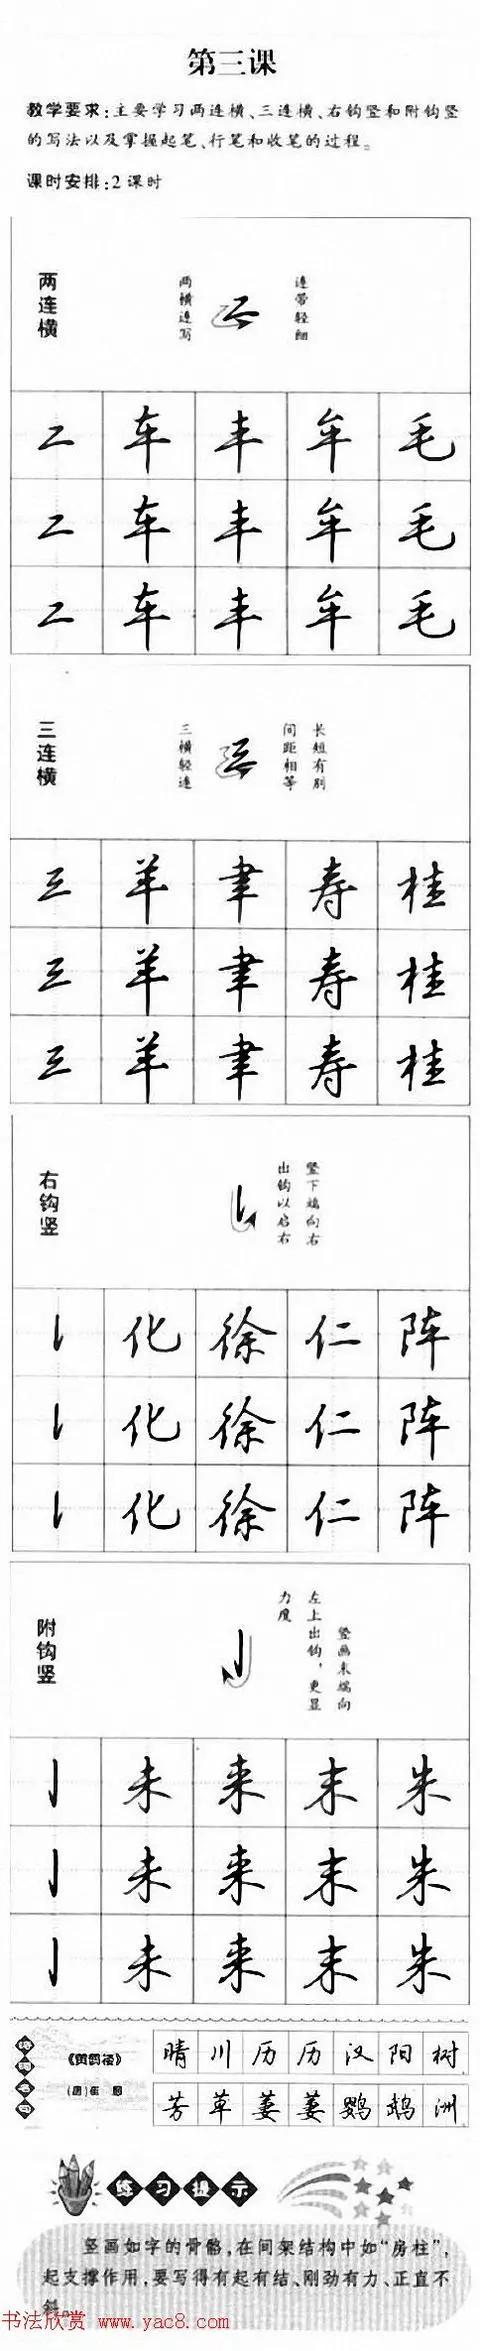 第三课
教学要求:主要学习两连横、三连横、右钩竖和附钩竖
的写法以及掌握起笔、行笔和收笔的过程。
课时安排:2课时
两连横
两横连写
连带轻细
二 车 丰 牟 毛
二 车 丰 牟 毛
二 车 丰 牟 毛
三连横
三横轻连
长短有别
间距相等
三 羊 聿 寿 桂
三 羊 聿 寿 桂
三 羊 聿 寿 桂
右钩竖
竖下端向右
出钩以启右
化 徐 仁 阵
化 徐 仁 阵
化 徐 仁 阵
附钩竖
竖画末端向
左上出钩，更显
力度
未 来 末 朱
未 来 末 朱
未 来 末 朱
诗词名句
《黄鹤楼》
(唐)崔 颢
晴川历历汉阳树
芳草萋萋鹦鹉洲
练习提示
竖画如字的骨骼,在间架结构中如“房柱”,
起支撑作用,要写得有起有结、刚劲有力、正直不
斜。
书法欣赏 www.yac8.com